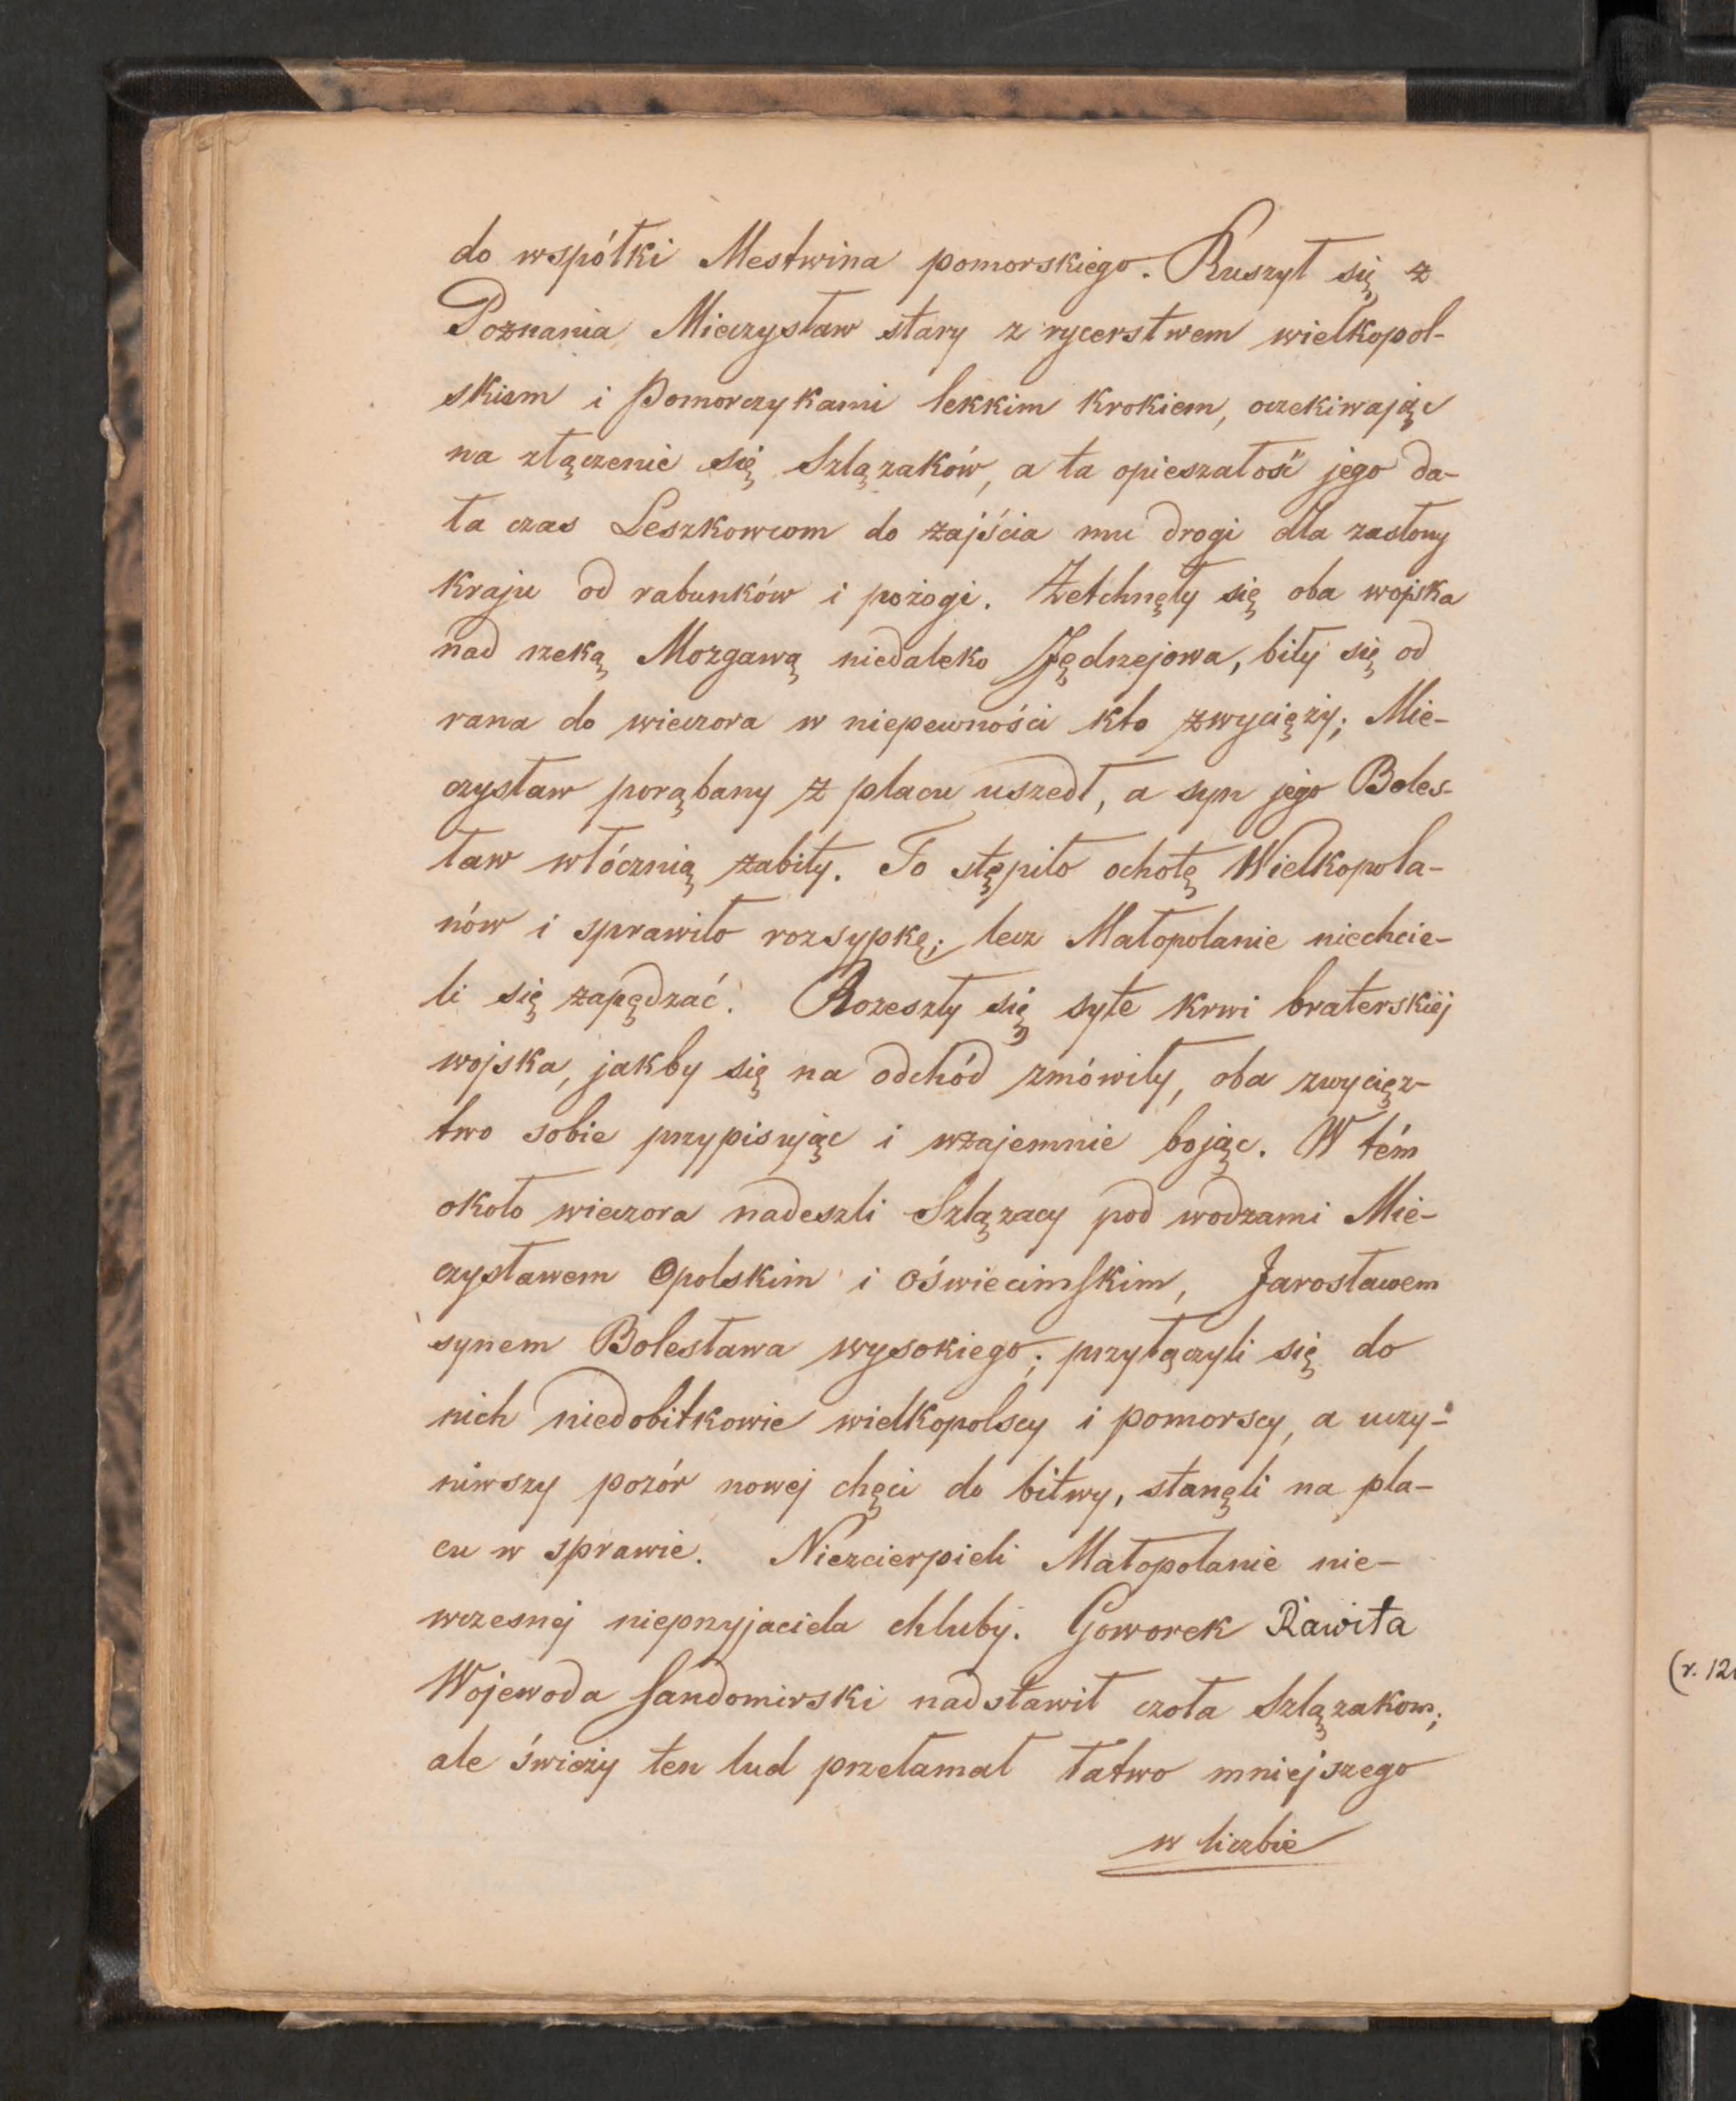 do współki Mestwina pomorskiego. Ruszył się z
Poznania Mieczysław stary z rycerstwem wielkopol-
skiem i Pomorczykami lekkim krokiem, oczekiwając
na złączenie się Szlązaków, a ta opieszałość jego da-
ła czas Leszkowcom do zajścia mu drogi dla zasłony
kraju od rabunków i pożogi. Zetchnęły się oba wojska
nad rzeką Mozgawą niedaleko Jędrzejowa, biły się od
rana do wieczora w niepewności kto zwycięży; Mie-
czysław porąbany z placu uszedł, a syn jego Boles-
ław włócznią zabity. To stępiło ochotę Wielkopola-
nów i sprawiło rozsypkę; lecz Małopolanie niechcie-
li się zapędzać. Rozeszły się syte krwi braterskiéj
wojska, jakby się na odchód zmówiły, oba zwycięz-
two sobie przypisując i wzajemnie bojąc. W tém
około wieczora nadeszli Szlązacy pod wodzami Mie-
czysławem Opolskim i Oświecimskim, Jarosławem
synem Bolesława wysokiego; przyłączyli się do
nich niedobitkowie wielkopolscy i pomorscy, a uczy-
niwszy pozór nowej chęci do bitwy, stanęli na pla-
cu w sprawie. Niezcierpieli Małopolanie nie-
wczesnej nieprzyjaciela chluby. Goworek Rawita
Wojewoda Sandomirski nadstawił czoła Szlązakom;
ale świeży ten lud przełamał łatwo mniejszego
w liczbie
(r. 12